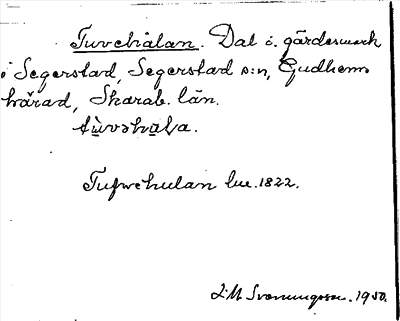 Tuvehålan. Dal i gärdesmark
i Segerstad, Segerstad s:n, Gudhems
härad, Skarab. län.
tùvəhȧla.
Tufwehulan lm. 1822.
1950.